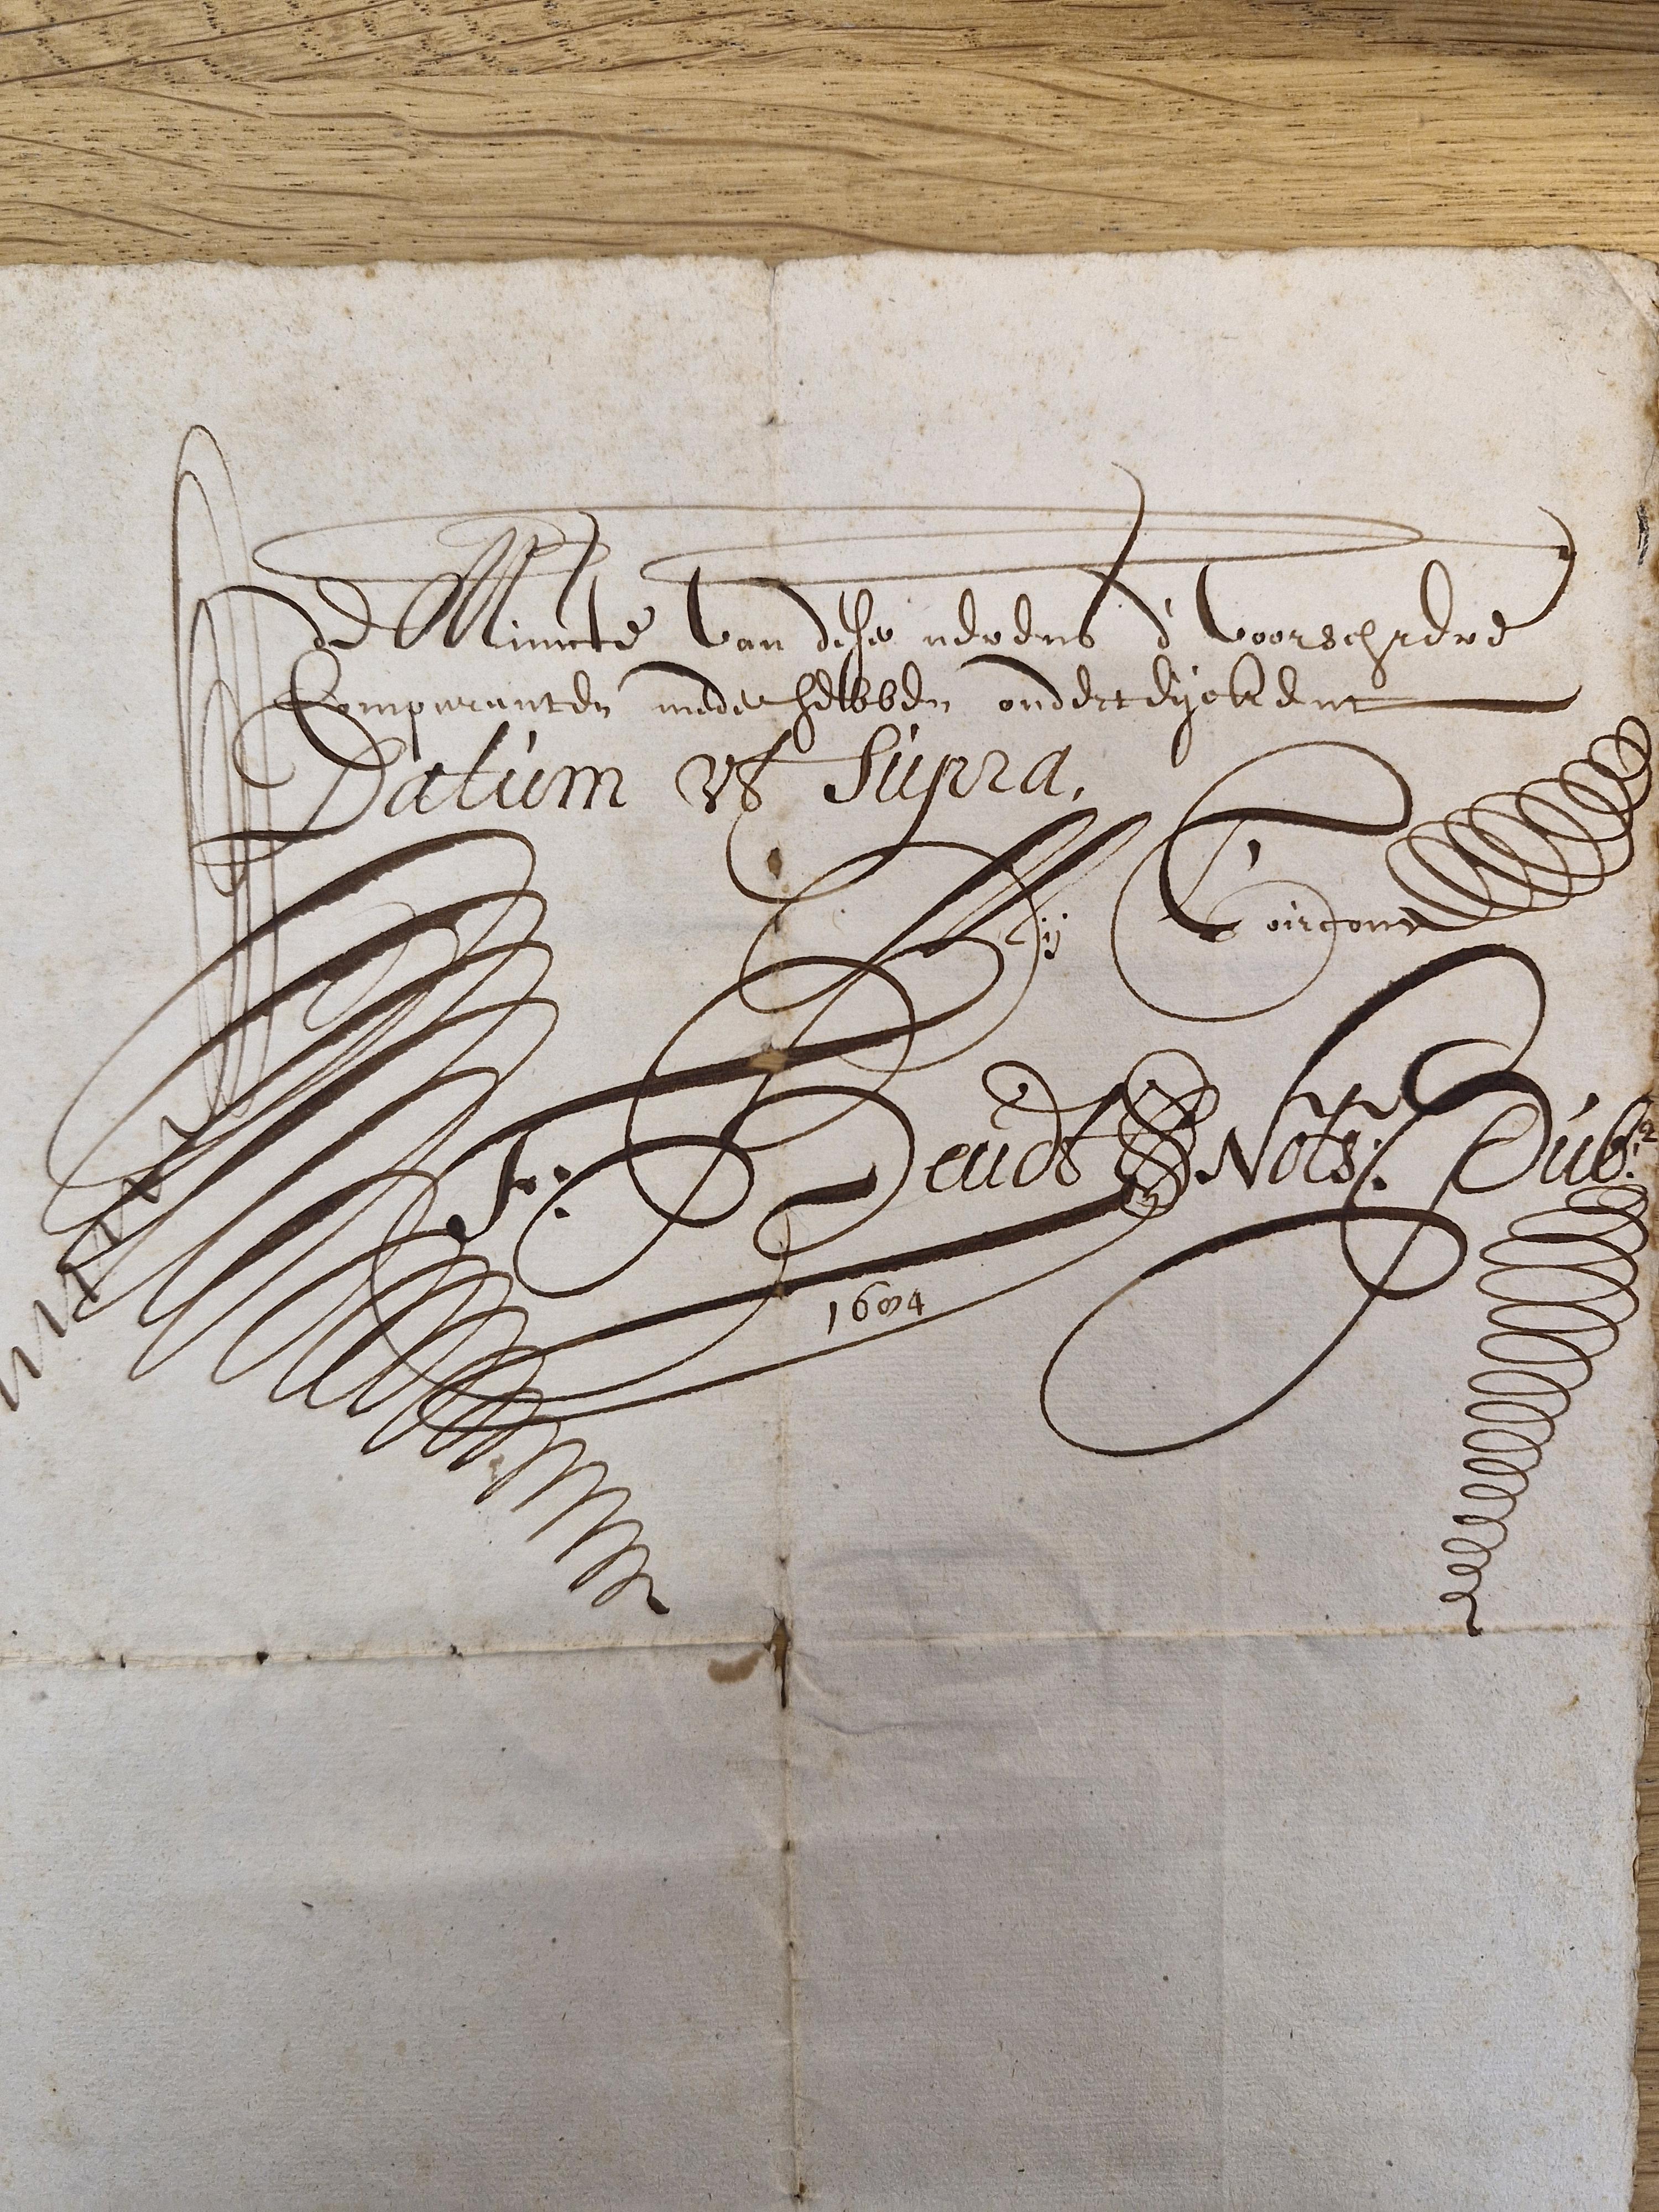 de Minute van dese nevens d' voorschreve
Comparanten mede hebben onderteyckent
Datum Ut Supra,
My Toirconde
Fr: Deudt Nots: Pub:
1684